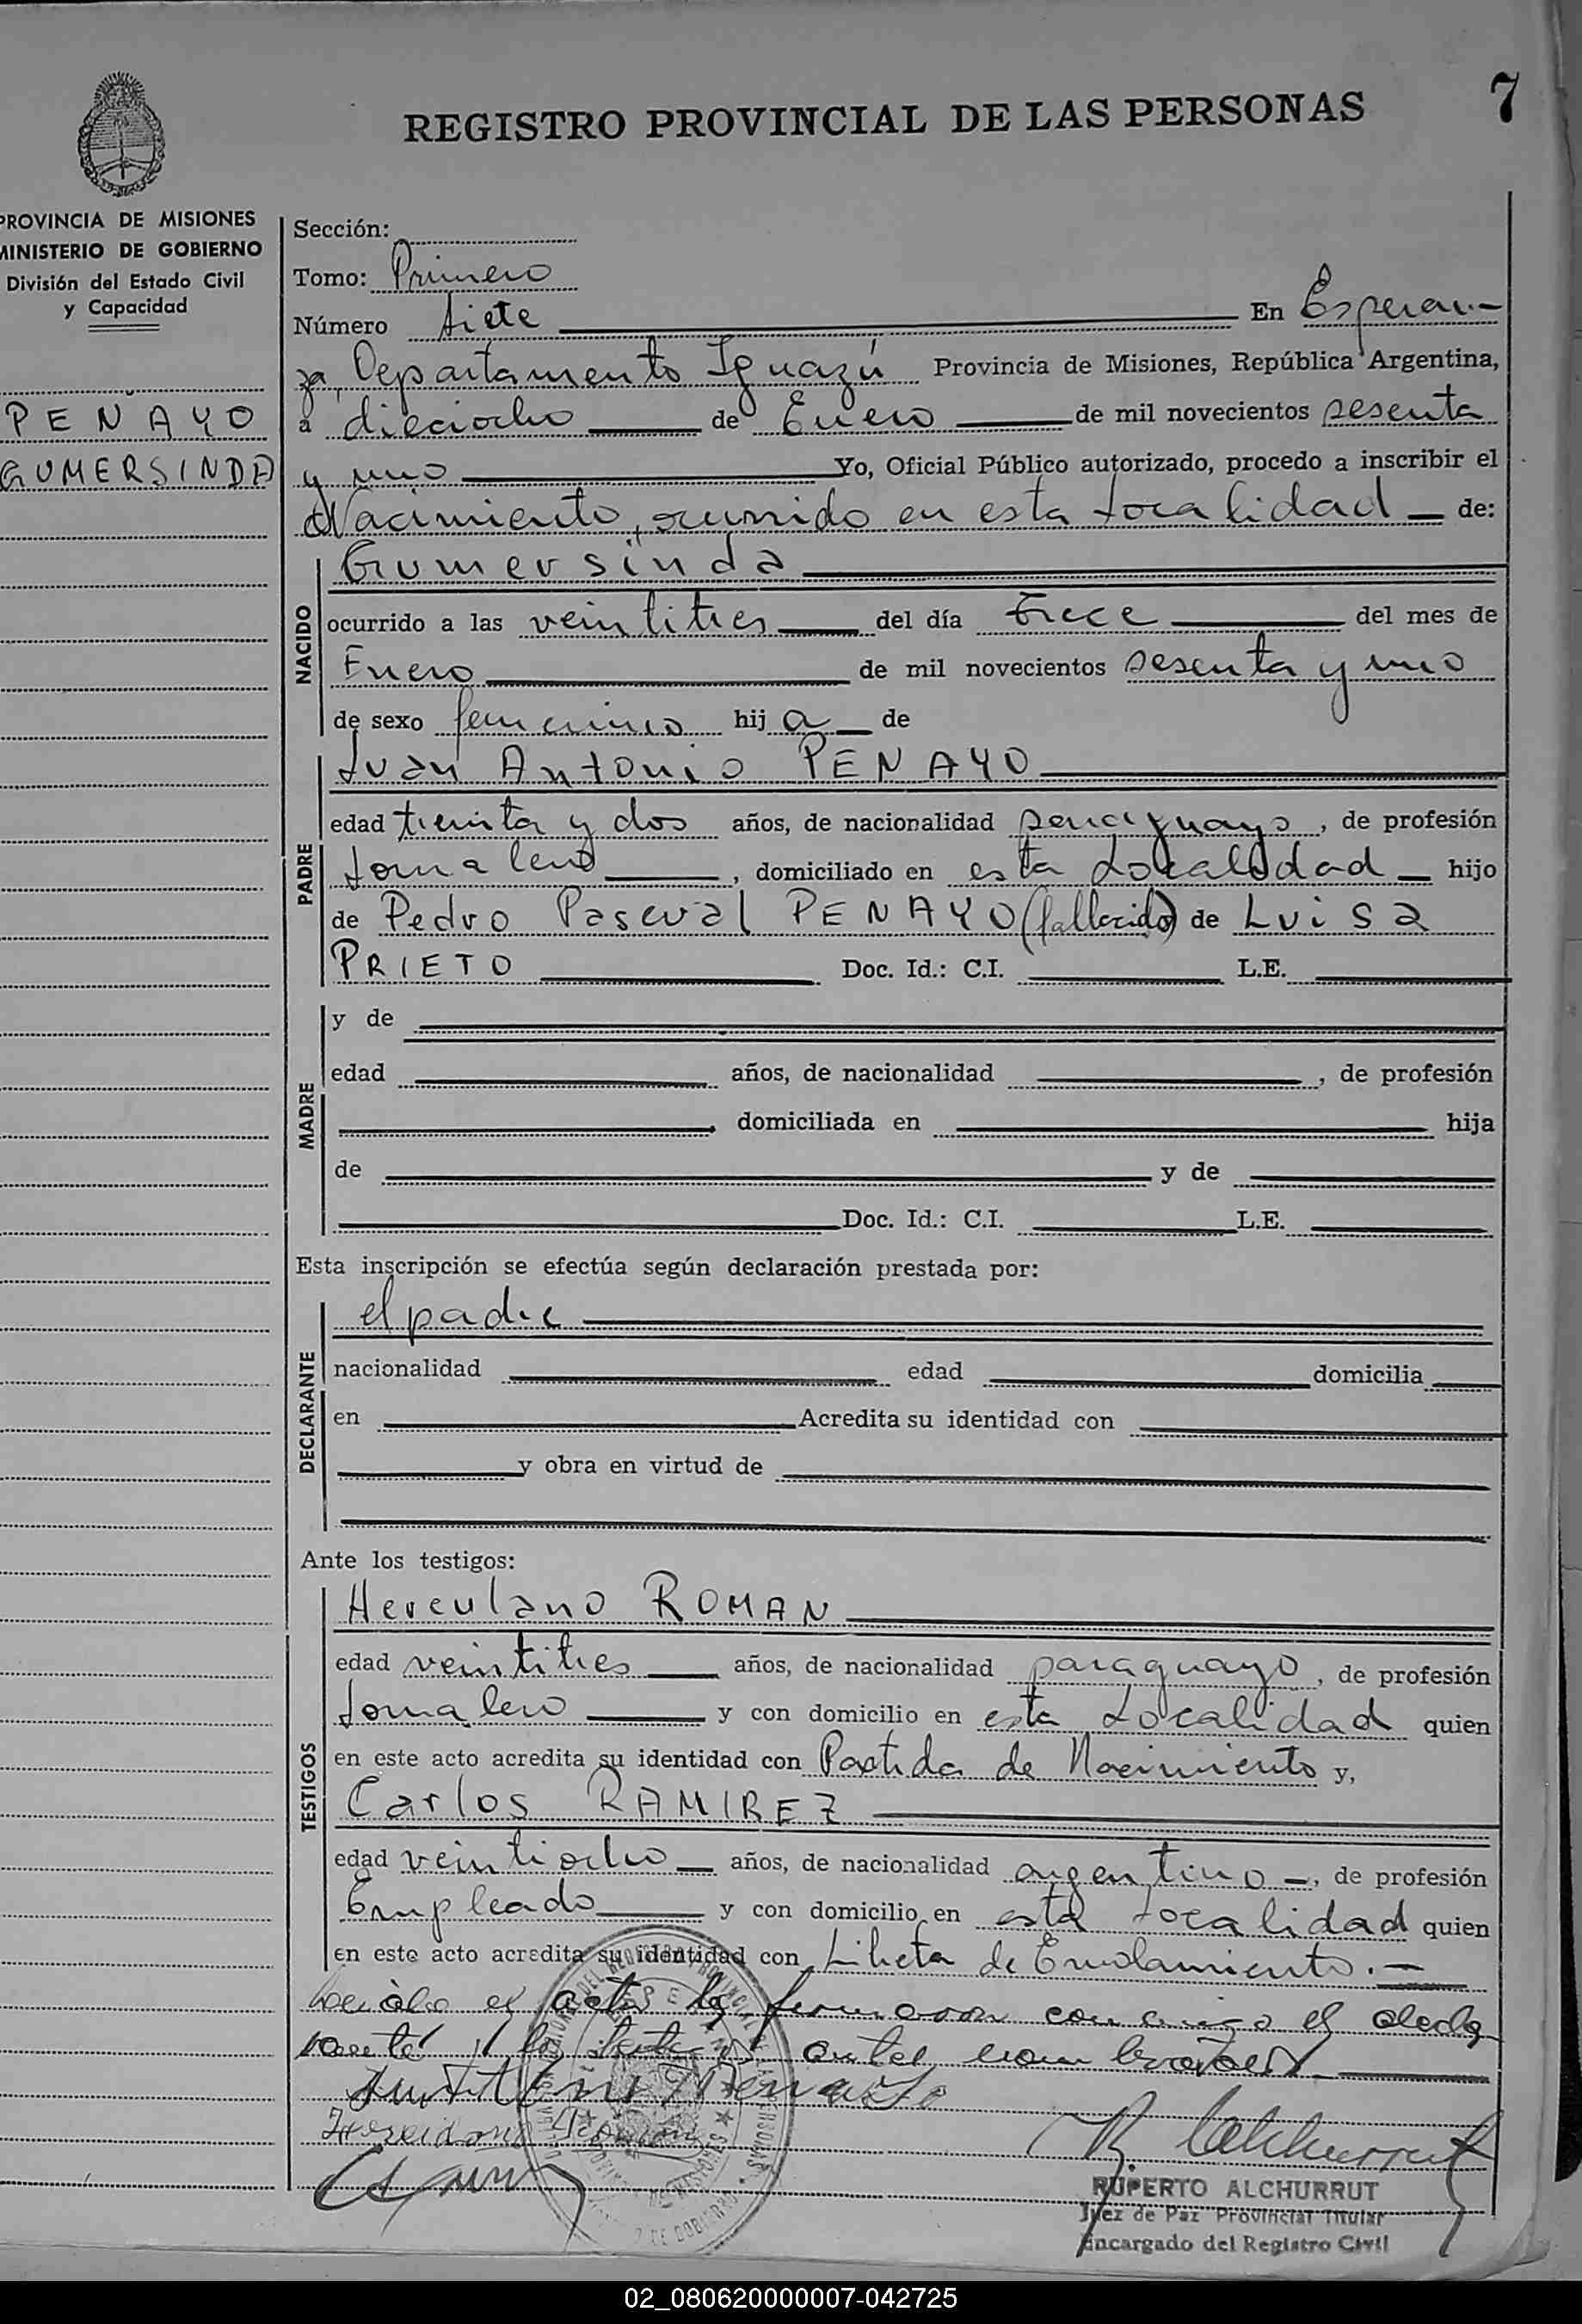 REGISTRO PROVINCIAL DE LAS PERSONAS
7
PROVINCIA DE MISIONES
MINISTERIO DE GOBIERNO
División del Estado Civil
y Capacidad
PENAYO
GUMERSINDA
Sección:
Tomo: Primero
Número Siete En Esperan-
za, Departamento Iguazú Provincia de Misiones, República Argentina,
a dieciocho de Enero de mil novecientos sesenta
y uno Yo, Oficial Público autorizado, procedo a inscribir el
Nacimiento, ocurrido en esta Localidad de:
NACIDO
Gumersinda
ocurrido a las veintitres del día trece del mes de
Enero de mil novecientos sesenta y uno
de sexo femenino hija de
PADRE
Juan Antonio PENAYO
edad treinta y dos años, de nacionalidad paraguayo, de profesión
Jornalero, domiciliado en esta Localidad hijo
de Pedro Pascual PENAYO (fallecido) de Luisa
PRIETO Doc. Id.: C.I. L.E.
MADRE
y de
edad años, de nacionalidad , de profesión
, domiciliada en hija
de y de
Doc. Id.: C.I. L.E.
Esta inscripción se efectúa según declaración prestada por:
DECLARANTE
el padre
nacionalidad edad domicilia
en Acredita su identidad con
y obra en virtud de
Ante los testigos:
TESTIGOS
Herculano ROMAN
edad veintitres años, de nacionalidad paraguayo, de profesión
Jornalero y con domicilio en esta Localidad quien
en este acto acredita su identidad con Partida de Nacimiento y,
Carlos RAMIREZ
edad veintiocho años, de nacionalidad argentino, de profesión
Empleado y con domicilio en esta Localidad quien
en este acto acredita su identidad con Libreta de Enrolamiento.
el acta la firmaron conmigo el decla
rante y los testigos antes nombrados
Penayo
R. Alchurrut
RUPERTO ALCHURRUT
Juez de Paz Provincial Titular
Encargado del Registro Civil
02_080620000007-042725